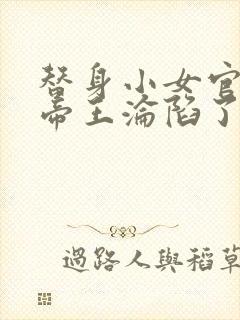 替身小女官
帝王淪陷了
過路人與稻草